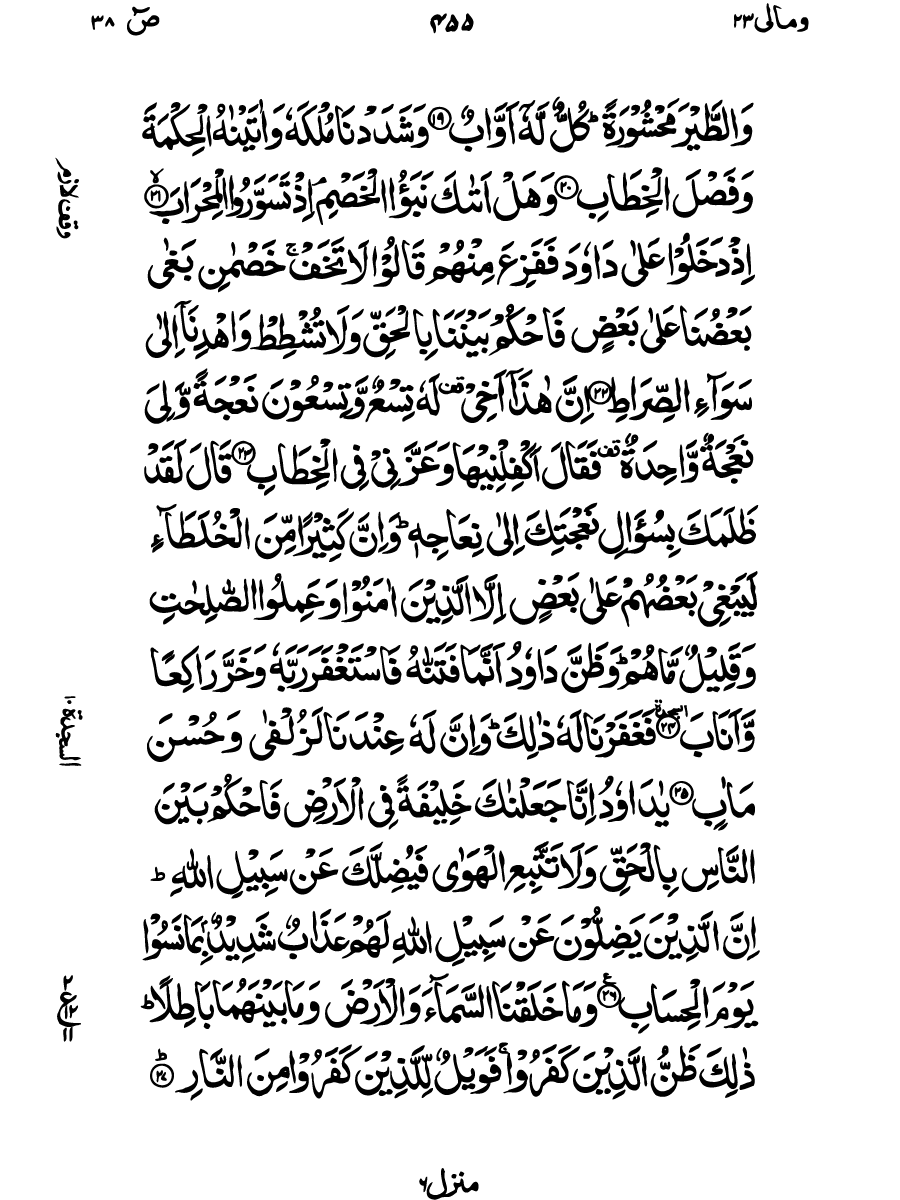 ومالی ۲۳ ۴۵۵ صٓ ۳۸
وَالطَّيْرَ مَحْشُوْرَةً ؕ كُلٌّ لَّهٗۤ اَوَّابٌ ﴿۱۹﴾ وَشَدَدْنَا مُلْكَهٗ وَاٰتَيْنٰهُ الْحِكْمَةَ
وَفَصْلَ الْخِطَابِ ﴿۲۰﴾ وَهَلْ اَتٰىكَ نَبَؤُا الْخَصْمِ ۘ اِذْ تَسَوَّرُوا الْمِحْرَابَ ﴿۲۱﴾ ۙ
وقف لازم
اِذْ دَخَلُوْا عَلٰى دَاوٗدَ فَفَزِعَ مِنْهُمْ قَالُوْا لَا تَخَفْ ۚ خَصْمٰنِ بَغٰى
بَعْضُنَا عَلٰى بَعْضٍ فَاحْكُمْ بَيْنَنَا بِالْحَقِّ وَلَا تُشْطِطْ وَاهْدِنَاۤ اِلٰى
سَوَآءِ الصِّرَاطِ ﴿۲۲﴾ اِنَّ هٰذَاۤ اَخِيْ ۫ لَهٗ تِسْعٌ وَّتِسْعُوْنَ نَعْجَةً وَّلِيَ
نَعْجَةٌ وَّاحِدَةٌ ۫ فَقَالَ اَكْفِلْنِيْهَا وَعَزَّنِيْ فِي الْخِطَابِ ﴿۲۳﴾ قَالَ لَقَدْ
ظَلَمَكَ بِسُؤَالِ نَعْجَتِكَ اِلٰى نِعَاجِهٖ ؕ وَاِنَّ كَثِيْرًا مِّنَ الْخُلَطَآءِ
لَيَبْغِيْ بَعْضُهُمْ عَلٰى بَعْضٍ اِلَّا الَّذِيْنَ اٰمَنُوْا وَعَمِلُوا الصّٰلِحٰتِ
وَقَلِيْلٌ مَّا هُمْ ؕ وَظَنَّ دَاوٗدُ اَنَّمَا فَتَنّٰهُ فَاسْتَغْفَرَ رَبَّهٗ وَخَرَّ رَاكِعًا
وَّاَنَابَ السجدة ﴿۲۴﴾ فَغَفَرْنَا لَهٗ ذٰلِكَ ؕ وَاِنَّ لَهٗ عِنْدَنَا لَزُلْفٰى وَحُسْنَ
السجدة ۱۰
مَاٰبٍ ﴿۲۵﴾ يٰدَاوٗدُ اِنَّا جَعَلْنٰكَ خَلِيْفَةً فِي الْاَرْضِ فَاحْكُمْ بَيْنَ
النَّاسِ بِالْحَقِّ وَلَا تَتَّبِعِ الْهَوٰى فَيُضِلَّكَ عَنْ سَبِيْلِ اللّٰهِ ؕ
اِنَّ الَّذِيْنَ يَضِلُّوْنَ عَنْ سَبِيْلِ اللّٰهِ لَهُمْ عَذَابٌ شَدِيْدٌۢ بِمَا نَسُوْا
يَوْمَ الْحِسَابِ ﴿۲۶﴾ وَمَا خَلَقْنَا السَّمَآءَ وَالْاَرْضَ وَمَا بَيْنَهُمَا بَاطِلًا ؕ
ذٰلِكَ ظَنُّ الَّذِيْنَ كَفَرُوْا ۚ فَوَيْلٌ لِّلَّذِيْنَ كَفَرُوْا مِنَ النَّارِ ﴿۲۷﴾ ؕ
منزل ۶